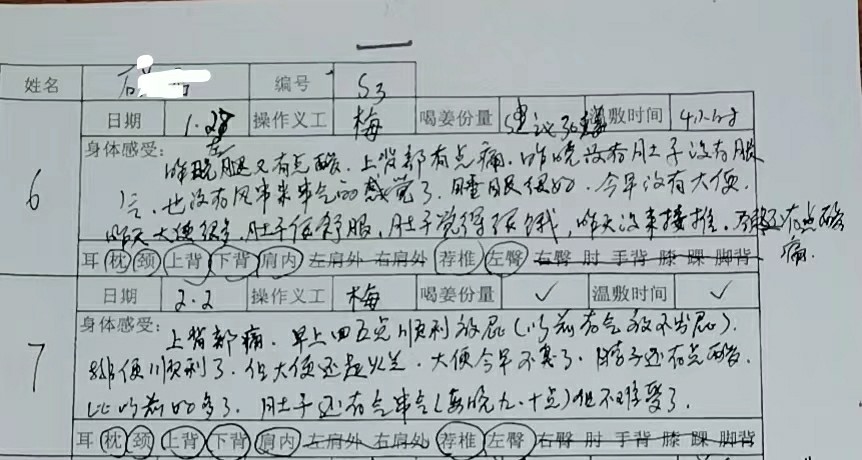 一
姓名 石 编号 S3
6
日期 1.28 操作义工 梅 喝姜份量 建议 温敷时间 4小时
身体感受：
昨晚左腿又有点酸。上背部有点痛。昨晚没有肚子没有胀
气，也没有风串来串气的感觉了。睡眠很好。今早没有大便。
昨天大便很多，肚子很舒服，肚子觉得很饿，昨天没来接推。还有点酸
痛。
耳 枕 颈 上背 下背 肩内 左肩外 右肩外 荐椎 左臀 右臀 肘 手背 膝 踝 脚背
7
日期 2.2 操作义工 梅 喝姜份量 ✓ 温敷时间 ✓
身体感受：
上背部痛。早上四五点顺利放屁（以前有气放不出屁）.
排便顺利了。但大便还起火。大便今早不臭了。脖子还有点酸.
比以前好多了。肚子还有气串气（每晚九、十点）但不难受了.
耳 枕 颈 上背 下背 肩内 左肩外 右肩外 荐椎 左臀 右臀 肘 手背 膝 踝 脚背